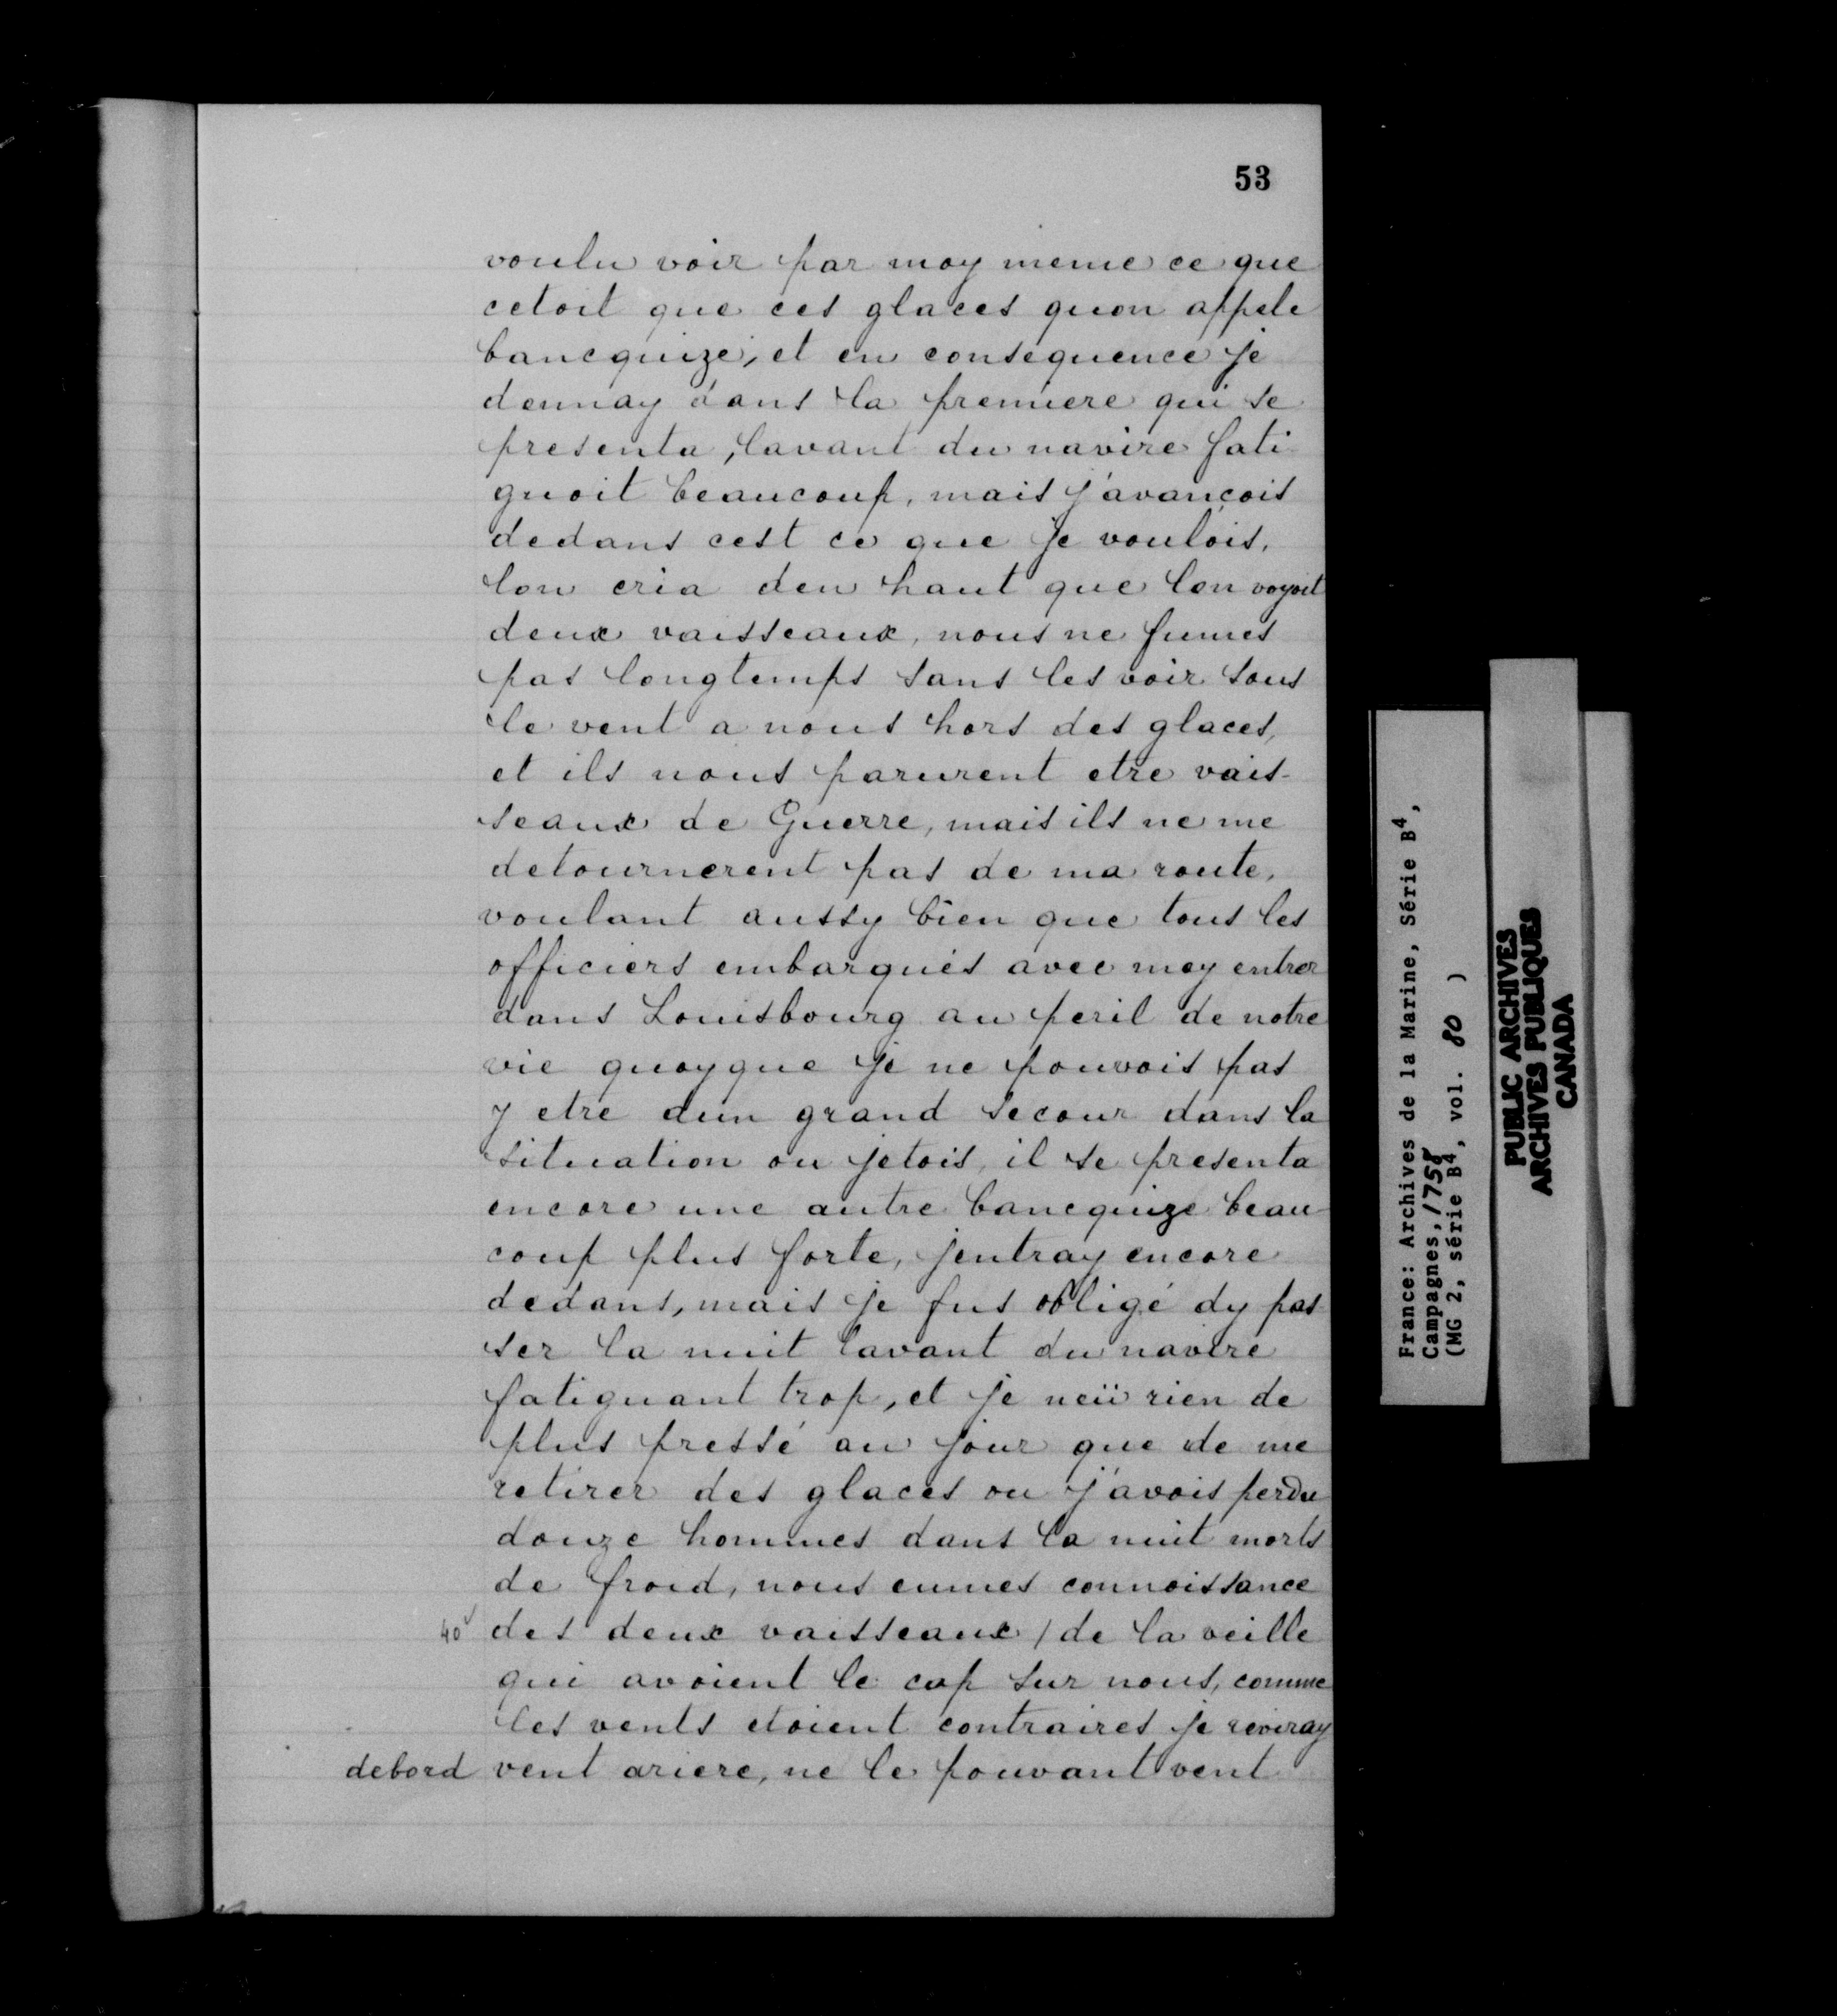 53
voulu voir par moy meme ce que
cetoit que ces glaces quon appele
bancquize, et en consequence je
donnay dans la premiere qui se
presenta, lavant du navire fati
guoit beaucoup, mais j'avançois
dedans cest ce que je voulois,
lon cria den haut que lon voyoit
deux vaisseaux, nous ne fumes
pas longtemps sans les voir sous
le vent a nous hors des glaces,
et ils nous parurent etre vais-
seaux de Guerre, mais ils ne me
detournerent pas de ma route,
voulant aussy bien que tous les
officiers embarqués avec moy entrer
dans Louisbourg au peril de notre
vie quoyque je ne pouvois pas
y etre dun grand secour dans la
situation ou jetois, il se presenta
encore une autre bancquize beau
coup plus forte, jentray encore
dedans, mais je fus obligé dy pas
ser la nuit lavant du navire
fatiguant trop, et je neü rien de
plus pressé au jour que de me
retirer des glaces ou j'avois perdu
douze hommes dans la nuit morts
de froid, nous eumes connoissance
40 des deux vaisseaux / de la veille
qui avoient le cap sur nous, comme
les vents etoient contraires je reviray
debord vent ariere, ne le pouvant vent
France: Archives de la Marine, Série B4,
Campagnes, 1758
(MG 2, série B4, vol. 80 )
PUBLIC ARCHIVES
ARCHIVES PUBLIQUES
CANADA